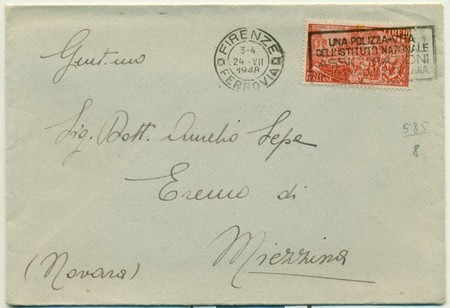 FIRENZE
FERROVIA
3-4
24·VII
1948
UNA POLIZZA VITA
DELL'ISTITUTO NAZIONALE
ASSICURAZIONI
585
8
Sig. Dott. Aurelio Sepe
Eremo di
Miazzina
(Novara)